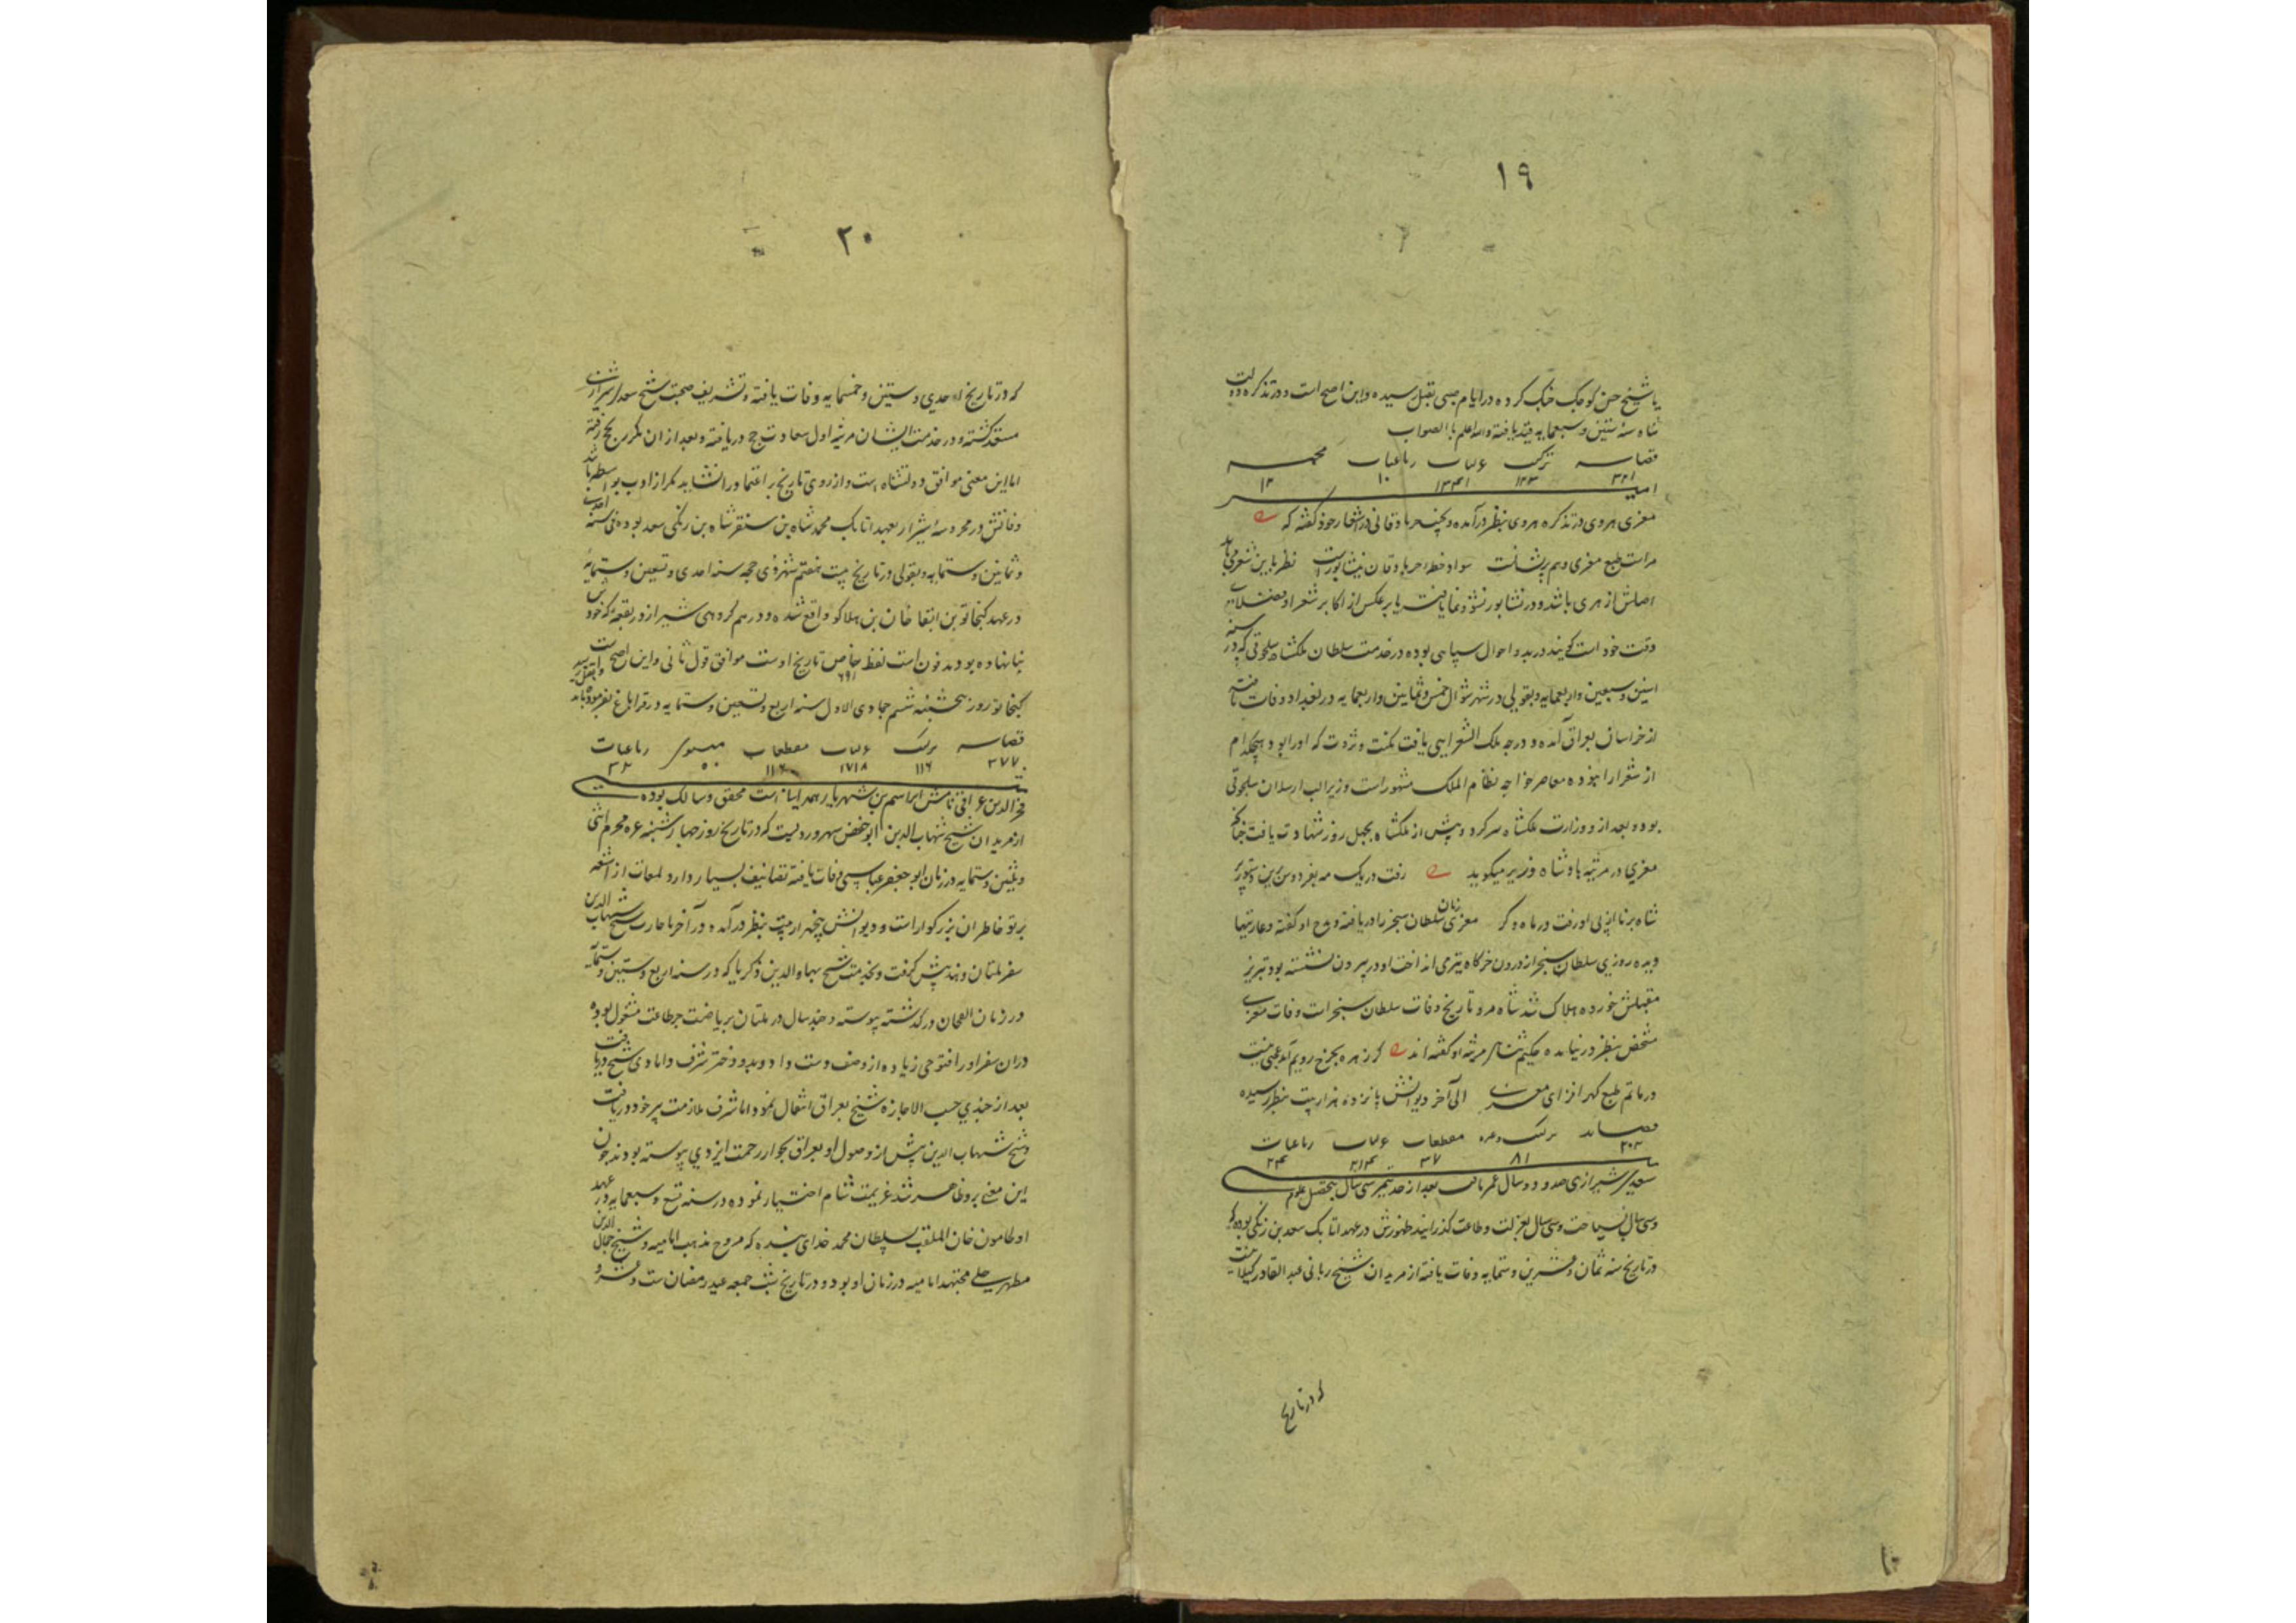 ۱۹
با شیخ حسن کوچک جنگ کرده در ایام صبی بقتل رسیده و این اصح است و در تذکره دولت
شاه سنه ستین و سبعمایه قید یافته والله اعلم بالصواب
قصاید ترکیب غزلیات رباعیات مخمسه
۳۲۱ ۱۲۳ ۱۳۴۱ ۱۰ ۱۲
امیر
معزی هروی در تذکره هروی بنظر در آمده و بچند جا دقانی در اشعار خود گفته که
مراست طبع معزی و هم پریشانست سواد خطه نیشابور است نظر باین شعر می باید
اصلش از هری باشد و در نشابور نشو و نما یافت یا بر عکس از اکابر شعرا و فضلای
وقت خود است گویند در بدو احوال سپاهی بوده در خدمت سلطان ملکشاه سلجوقی که در سنه
اثنین و سبعین و اربعمایه و بقولی در شهر شوال خمس و ثمانین و اربعمایه در بغداد وفات یافته
از خراسان بعراق آمده و درجه ملک الشعرایی یافت مکنت و ثروت که او را بود هیچکدام
از شعرا را نبوده معاصر خواجه نظام الملک مشهور است وزیر الب ارسلان سلجوقی
بود و بعد از و وزارت ملکشاه سر کرد و پیش از ملکشاه بچهل روز شهادت یافت چنانکه
معزی در مرثیه پادشاه و وزیر میگوید رفت در یک مه بفردوس برین دستور پیر
شاه برنا از پی او رفت در ماه دگر معزی زمان سلطان سنجر را دریافته و مدح او گفته و عارتیها
دیده روزی سلطان سنجر از درون خرگاه تیری انداخت او در بیرون نشسته بود تیر بر
مقتلش خورده هلاک شد شاه مرو تاریخ وفات سلطان سنجر است وفات معزی
مشخص بنظر در نیامده حکیم سنائی مرثیه او گفته اند گر زهره بچرخ دویم آید عجبی نیست
در ماتم طبع گهر افزای معزی الی آخر دیوانش پانزده هزار بیت بنظر رسیده
قصاید ترکیب وغیره مقطعات غزلیات رباعیات
۲۰۳ ۸۱ ۳۷ ۲۱۴ ۲۴
سعدی شیرازی صد و دو سال عمر یافت بعد از حد تمیز سی سال بتحصیل علوم
و سی سال بسیاحت و سی سال بعزلت و طاعت گذرانید ظهورش در عهد اتابک سعد بن زنگی بوده که
در تاریخ سنه ثمان و عشرین و ستمایه وفات یافته از مریدان شیخ ربانی عبد القادر گیلانیست
که در تاریخ
۲۰
که در تاریخ احدی و ستین و خمسمایه وفات یافته و تشریف صحبت شیخ سعد شیرازی
مستعد گشته و در خدمت ایشان مرتبه اول سعادت حج دریافته و بعد از ان مکرر بحج رفته
اما این معنی موافق دولتشاه است و از روی تاریخ بر اعتماد را نشاید مگر از ادب بواسطه باشد
وفاتش در محروسه شیراز بعهد اتابک محمد شاه بن سنقر شاه بن زنگی سعد بوده فی سنه احدی
و ثمانین و ستمایه و بقولی در تاریخ بیست هفتم شهر ذی حجه سنه احدی و تسعین و ستمایه
در عهد کیخاتو بن ابقا خان بن هلاکو واقع شده و در هم گروهی شیراز در بقعه که خودش
بنا نهاده بود مدفون است لفظ خاص تاریخ اوست موافق قول ثانی و این اصح است
۶۹۱
کیخاتو روز پنجشنبه ششم جمادی الاول سنه اربع و تسعین و ستمایه در قراباغ بقتل رسید
قصاید ترکیب غزلیات مقطعات مثنوی رباعیات
۳۷۷ ۱۱۶ ۱۷۱۸ ۱۱۶ ۵۰ ۳۲
فخر الدین عراقی نامش ابراهیم بن شهریار همدانیان است محقق و سالک بوده
از مریدان شیخ شهاب الدین ابو حفص سهروردیست که در تاریخ روز چهارشنبه غره محرم اثنی
و ثلثین و ستمایه در زمان ابو جعفر عباسی وفات یافته تصانیف بسیار دارد لمعات از اشعه
پرتو خاطر ان بزرگوار است و دیوانش پنجهزار بیت بنظر در آمده در آخر با جازت شیخ شهاب الدین
سفر ملتان و هند پیش گرفت و بخدمت شیخ بهاء الدین ذکریا که در سنه اربع و ستین و ستمایه
در زمان الغخان در گذشته پیوسته و چند سال در ملتان بریاضت و طاعت مشغول بوده
در ان سفر او را فتوحی زیاده از وصف دست داد و بدو دختر شرف دامادی شیخ دریافت
بعد از چندی حسب الاجازه شیخ بعراق انتقال نمود اما شرف ملازمت پیر خود در نیافت
و شیخ شهاب الدین پیش از وصول او بعراق بجوار رحمت ایزدی پیوسته بودند چون
این معنی برو ظاهر شد عزیمت شام اختیار نموده در سنه تسع و سبعمایه در عهد
اولجامتون خان الملقب بسلطان محمد خدای بنده که مروج مذهب امامیه و شیخ جمال الدین
مطهر حلی مجتهد امامیه در زمان او بود و در تاریخ شب جمعه عید رمضان ست و عشر و